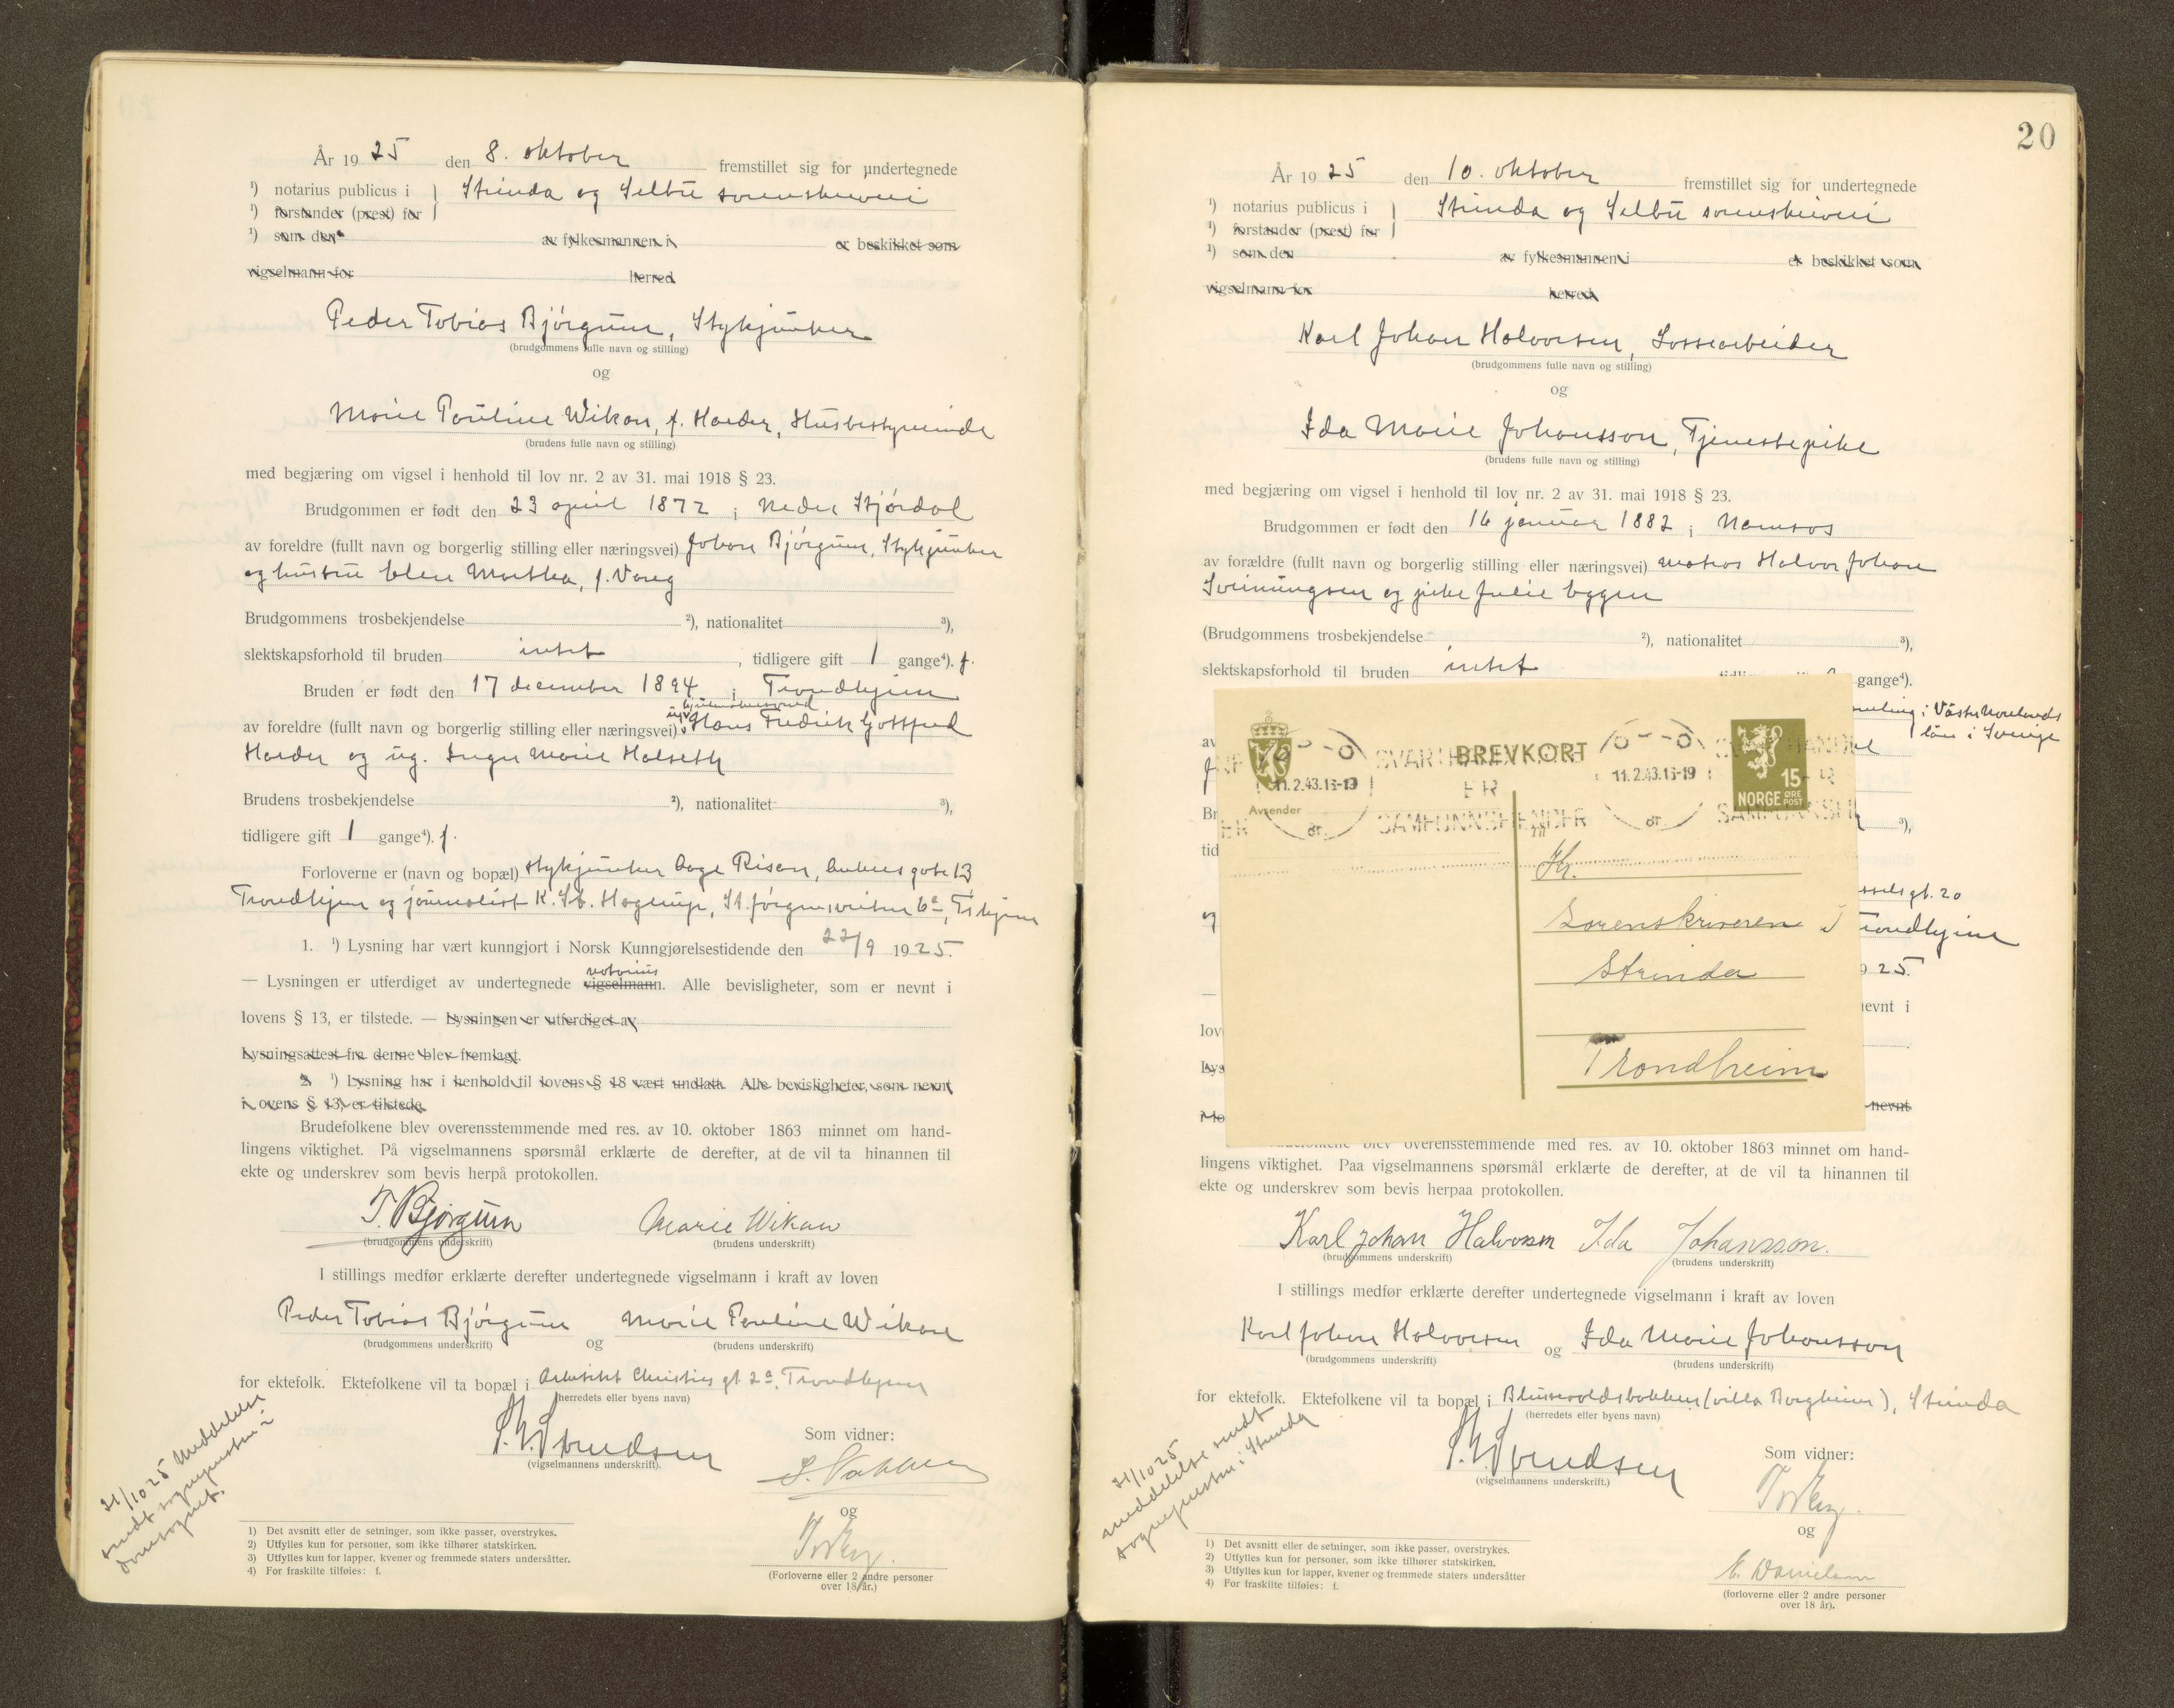 År 1925 den 8. oktober fremstillet sig for undertegnede
¹) notarius publicus i Strinda og Selbu sorenskriveri
¹) forstander (prest) for
¹) som den av fylkesmannen i er beskikket som
vigselmann for herred
Peder Tobias Bjørgum, Stykjunker
(brudgommens fulle navn og stilling)
og
Marie Pauline Wikan, f. Harder, Husbestyrerinde
(brudens fulle navn og stilling)
med begjæring om vigsel i henhold til lov nr. 2 av 31. mai 1918 § 23.
Brudgommen er født den 23 april 1872 i Nedre Stjørdal
av foreldre (fullt navn og borgerlig stilling eller næringsvei) Johan Bjørgum, Stykjunker
og hustru Elen Martha, f. Vareg
Brudgommens trosbekjendelse ²), nationalitet ³),
slektskapsforhold til bruden intet, tidligere gift 1 gange⁴). f.
Bruden er født den 17 december 1894 i Trondhjem
av foreldre (fullt navn og borgerlig stilling eller næringsvei) Hans Fredrik Gottfred
Harder og ug. Inger Marie Halseth
Brudens trosbekjendelse ²), nationalitet ³),
tidligere gift 1 gange⁴). f.
Forloverne er (navn og bopæl) stykjunker Aage Risan, gate 13
Trondhjem og journalist K. Hagerup, St. Jørgensveiten 6a, Trhjem
1. ¹) Lysning har vært kunngjort i Norsk Kunngjørelsestidende den 22/9 1925.
notarius
— Lysningen er utferdiget av undertegnede vigselmann. Alle bevisligheter, som er nevnt i
lovens § 13, er tilstede. — Lysningen er utferdiget av
Lysningsattest fra denne blev fremlagt.
2 ¹) Lysning har i henhold til lovens § 18 vært undlatt. Alle bevisligheter, som nevnt
i lovens § 13, er tilstede.
Brudefolkene blev overensstemmende med res. av 10. oktober 1863 minnet om hand-
lingens viktighet. På vigselmannens spørsmål erklærte de derefter, at de vil ta hinannen til
ekte og underskrev som bevis herpå protokollen.
T. Bjørgum Marie Wikan
(brudgommens underskrift) (brudens underskrift)
I stillings medfør erklærte derefter undertegnede vigselmann i kraft av loven
Peder Tobias Bjørgum og Marie Pauline Wikan
(brudgommens underskrift) (brudens underskrift)
for ektefolk. Ektefolkene vil ta bopæl i Arkitekt Christies gt 2a, Trondhjem
(herredets eller byens navn)
Svendsen
(vigselmannens underskrift).
Som vidner:
og
(Forloverne eller 2 andre personer
over 18 år.)
21/10 25 Meddelelse
sendt sognepresten i
domsognet.
1) Det avsnitt eller de setninger, som ikke passer, overstrykes.
2) Utfylles kun for personer, som ikke tilhører statskirken.
3) Utfylles kun for lapper, kvener og fremmede staters undersåtter.
4) For fraskilte tilføies: f.
20
År 1925 den 10. oktober fremstillet sig for undertegnede
¹) notarius publicus i Strinda og Selbu sorenskriveri
¹) forstander (prest) for
¹) som den av fylkesmannen i er beskikket som
vigselmann for herred
Karl Johan Halvorsen, Lossearbeider
(brudgommens fulle navn og stilling)
og
Ida Marie Johansson, Tjenestepike
(brudens fulle navn og stilling)
med begjæring om vigsel i henhold til lov nr. 2 av 31. mai 1918 § 23.
Brudgommen er født den 16 januar 1882 i Namsos
av forældre (fullt navn og borgerlig stilling eller næringsvei) matros Halvor Johan
Svenningsen og pike Julie Eggen
(Brudgommens trosbekjendelse ²), nationalitet ³),
slektskapsforhold til bruden intet
gange⁴).
i Västernorrlands
län i Sverige
BREVKORT
SVARTHANDLER
ER
SAMFUNNSFIENDER
11.2.43.15-19
11.2.43.15-19
15
NORGE ØRE POST
Avsender
Til
Hr.
Sorenskriveren i
Strinda
Trondheim
gt. 20
Trondhjem
25.
nevnt i
nevnt
blev overensstemmende med res. av 10. oktober 1863 minnet om hand-
lingens viktighet. Paa vigselmannens spørsmål erklærte de derefter, at de vil ta hinannen til
ekte og underskrev som bevis herpaa protokollen.
Karl Johan Halvorsen Ida Johansson.
(brudgommens underskrift) (brudens underskrift)
I stillings medfør erklærte derefter undertegnede vigselmann i kraft av loven
Karl Johan Halvorsen og Ida Marie Johansson
(brudgommens underskrift) (brudens underskrift)
for ektefolk. Ektefolkene vil ta bopæl i Blussuvoldsbakken (villa Borgheim), Strinda
(herredets eller byens navn)
Svendsen
(vigselmannens underskrift.)
Som vidner:
og
E. Danielsen
(forloverne eller 2 andre personer
over 18 år).
21/10 25
meddelelse sendt
sognepresten i Strinda
1) Det avsnitt eller de setninger, som ikke passer, overstrykes.
2) Utfylles kun for personer, som ikke tilhører statskirken.
3) Utfylles kun for lapper, kvener og fremmede staters undersåtter
4) For fraskilte tilføies: f.